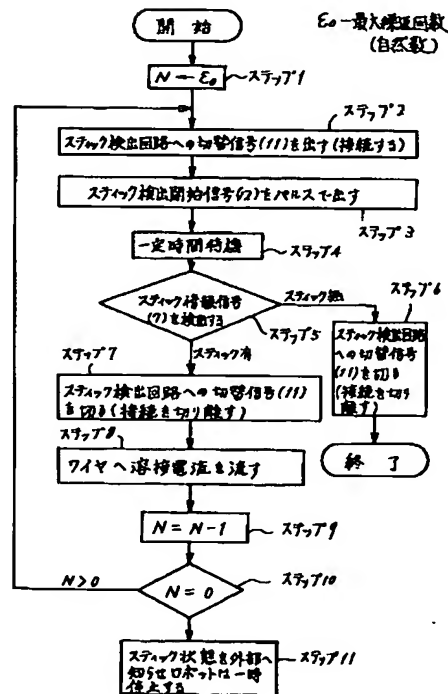 開始
ε₀ー最大繰返回数
(自然数)
N ← ε₀
ステップ1
ステップ2
スティック検出回路への切替信号(11)を出す(接続する)
スティック検出開始信号(12)をパルスで出す
ステップ3
一定時間待機
ステップ4
スティック情報信号
(7)を検出する
ステップ5
スティック無
スティック有
ステップ6
スティック検出回路
への切替信号
(11)を切る
(接続を切り
離す)
終了
ステップ7
スティック検出回路への切替信号(11)
を切る(接続を切り離す)
ステップ8
ワイヤへ溶接電流を流す
N = N-1
ステップ9
N>0
N = 0
ステップ10
スティック状態を外部へ
知らせロボットは一時
停止する
ステップ11